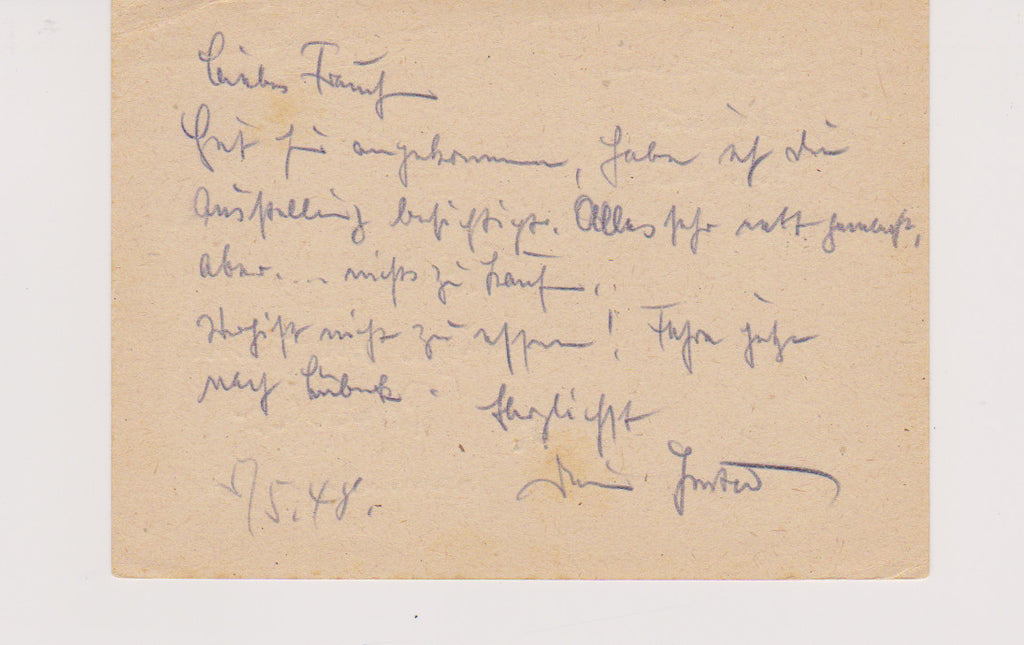 Liebes
Gut hier angekommen, habe ich die
Ausstellung besichtigt. Alles sehr nett gemacht,
aber.... nichts zu kaufen.
Vergißt nicht zu essen! Fahre jetzt
nach Lübeck. Herzlichst
Dein Gustav
5.48.